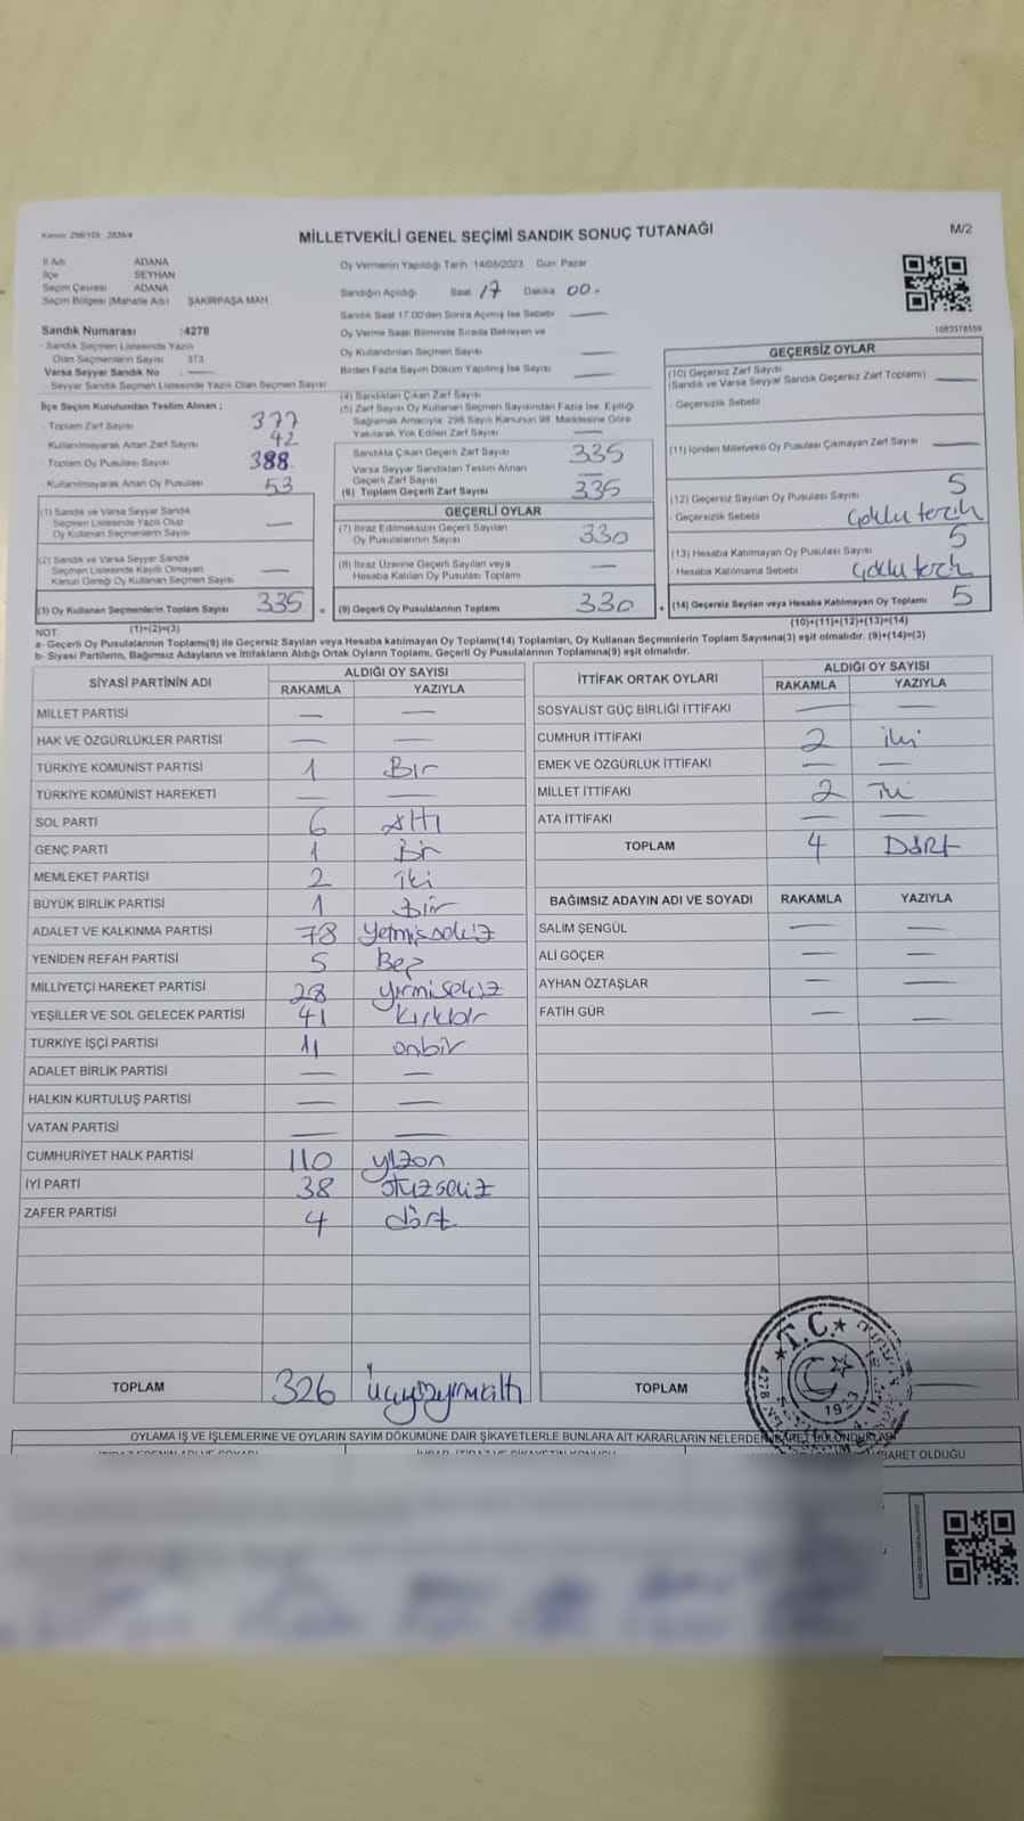 MİLLETVEKİLİ GENEL SEÇİMİ SANDIK SONUÇ TUTANAĞI
M/2
İl Adı ADANA
İlçe SEYHAN
Seçim Çevresi ADANA
Seçim Bölgesi (Mahalle Adı) ŞAKİRPAŞA MAH.
Sandık Numarası :4278
Sandık Seçmen Listesinde Yazılı
Olan Seçmenlerin Sayısı 373
Varsa Seyyar Sandık No : ——
Seyyar Sandık Seçmen Listesinde Yazılı Olan Seçmen Sayısı
Oy Vermenin Yapıldığı Tarih 14/05/2023 Gün Pazar
Sandığın Açıldığı Saat 17 Dakika 00.-
Sandık Saat 17.00'den Sonra Açılmış İse Sebebi —
Oy Verme Saati Bitiminde Sırada Bekleyen ve
Oy Kullandırılan Seçmen Sayısı —
Birden Fazla Sayım Döküm Yapılmış İse Sayısı —
1083378559
İlçe Seçim Kurulundan Teslim Alınan :
Toplam Zarf Sayısı 377
Kullanılmayarak Artan Zarf Sayısı 42
Toplam Oy Pusulası Sayısı 388
Kullanılmayarak Artan Oy Pusulası 53
(1) Sandık ve Varsa Seyyar Sandık
Seçmen Listesinde Yazılı Olup
Oy Kullanan Seçmenlerin Sayısı —
(2) Sandık ve Varsa Seyyar Sandık
Seçmen Listesinde Kayıtlı Olmayan
Kanun Gereği Oy Kullanan Seçmen Sayısı —
(3) Oy Kullanan Seçmenlerin Toplam Sayısı 335
(1)+(2)=(3)
(4) Sandıktan Çıkan Zarf Sayısı
(5) Zarf Sayısı Oy Kullanan Seçmen Sayısından Fazla İse, Eşitliği
Sağlamak Amacıyla 298 Sayılı Kanunun 98. Maddesine Göre
Yakılarak Yok Edilen Zarf Sayısı —
Sandıkta Çıkan Geçerli Zarf Sayısı 335
Varsa Seyyar Sandıktan Teslim Alınan
Geçerli Zarf Sayısı —
(6) Toplam Geçerli Zarf Sayısı 335
GEÇERLİ OYLAR
(7) İtiraz Edilmeksizin Geçerli Sayılan
Oy Pusulalarının Sayısı 330
(8) İtiraz Üzerine Geçerli Sayılan veya
Hesaba Katılan Oy Pusulası Toplamı —
(9) Geçerli Oy Pusulalarının Toplamı 330
GEÇERSİZ OYLAR
(10) Geçersiz Zarf Sayısı
(Sandık ve Varsa Seyyar Sandık Geçersiz Zarf Toplamı) —
Geçersizlik Sebebi
(11) İçinden Milletvekili Oy Pusulası Çıkmayan Zarf Sayısı —
(12) Geçersiz Sayılan Oy Pusulası Sayısı 5
Geçersizlik Sebebi Çoklu tercih
(13) Hesaba Katılmayan Oy Pusulası Sayısı 5
Hesaba Katılmama Sebebi Çoklu terch
(14) Geçersiz Sayılan veya Hesaba Katılmayan Oy Toplamı 5
(10)+(11)+(12)+(13)=(14)
NOT:
a- Geçerli Oy Pusulalarının Toplamı(9) ile Geçersiz Sayılan veya Hesaba katılmayan Oy Toplamı(14) Toplamları, Oy Kullanan Seçmenlerin Toplam Sayısına(3) eşit olmalıdır. (9)+(14)=(3)
b- Siyasi Partilerin, Bağımsız Adayların ve İttifakların Aldığı Ortak Oyların Toplamı, Geçerli Oy Pusulalarının Toplamına(9) eşit olmalıdır.
SİYASİ PARTİNİN ADI ALDIĞI OY SAYISI
RAKAMLA YAZIYLA
MİLLET PARTİSİ — —
HAK VE ÖZGÜRLÜKLER PARTİSİ — —
TÜRKİYE KOMÜNİST PARTİSİ 1 Bir
TÜRKİYE KOMÜNİST HAREKETİ — —
SOL PARTİ 6 Altı
GENÇ PARTİ 1 Bir
MEMLEKET PARTİSİ 2 iki
BÜYÜK BİRLİK PARTİSİ 1 bir
ADALET VE KALKINMA PARTİSİ 78 yetmişsekiz
YENİDEN REFAH PARTİSİ 5 Beş
MİLLİYETÇİ HAREKET PARTİSİ 28 yirmisekiz
YEŞİLLER VE SOL GELECEK PARTİSİ 41 kırkbir
TÜRKİYE İŞÇİ PARTİSİ 11 onbir
ADALET BİRLİK PARTİSİ — —
HALKIN KURTULUŞ PARTİSİ — —
VATAN PARTİSİ — —
CUMHURİYET HALK PARTİSİ 110 yüzon
İYİ PARTİ 38 otuzsekiz
ZAFER PARTİSİ 4 dört
TOPLAM 326 üçyüzyirmialtı
İTTİFAK ORTAK OYLARI ALDIĞI OY SAYISI
RAKAMLA YAZIYLA
SOSYALİST GÜÇ BİRLİĞİ İTTİFAKI — —
CUMHUR İTTİFAKI 2 iki
EMEK VE ÖZGÜRLÜK İTTİFAKI — —
MİLLET İTTİFAKI 2 iki
ATA İTTİFAKI — —
TOPLAM 4 Dört
BAĞIMSIZ ADAYIN ADI VE SOYADI RAKAMLA YAZIYLA
SALİM ŞENGÜL — —
ALİ GÖÇER — —
AYHAN ÖZTAŞLAR — —
FATİH GÜR — —
TOPLAM —
T.C.
1923
4278
OYLAMA İŞ VE İŞLEMLERİNE VE OYLARIN SAYIM DÖKÜMÜNE DAİR ŞİKAYETLERLE BUNLARA AİT KARARLARIN NELERDEN
OLDUĞU